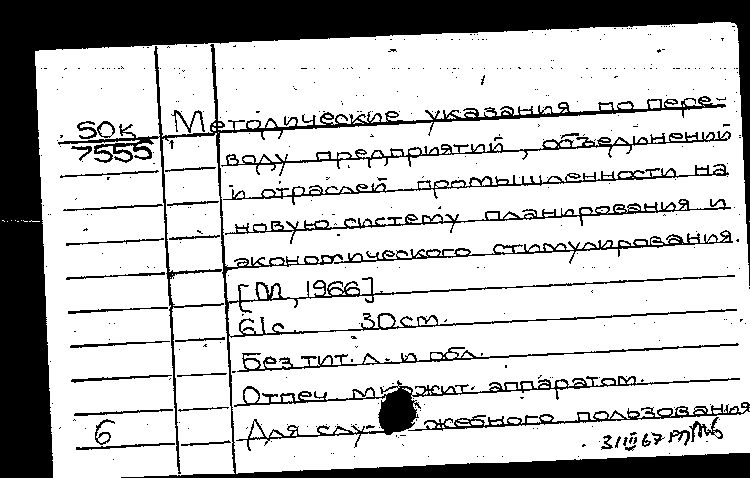 50к Методические указания по пере-
7555 воду предприятий, объединений
и отраслей промышленности на
новую систему планирования и
экономического стимулирования.
[М, 1966].
61с. 30см.
Без тит. л. и обл.
Отпеч. множит. аппаратом.
6 Для слу-жебного пользования
31 III 67